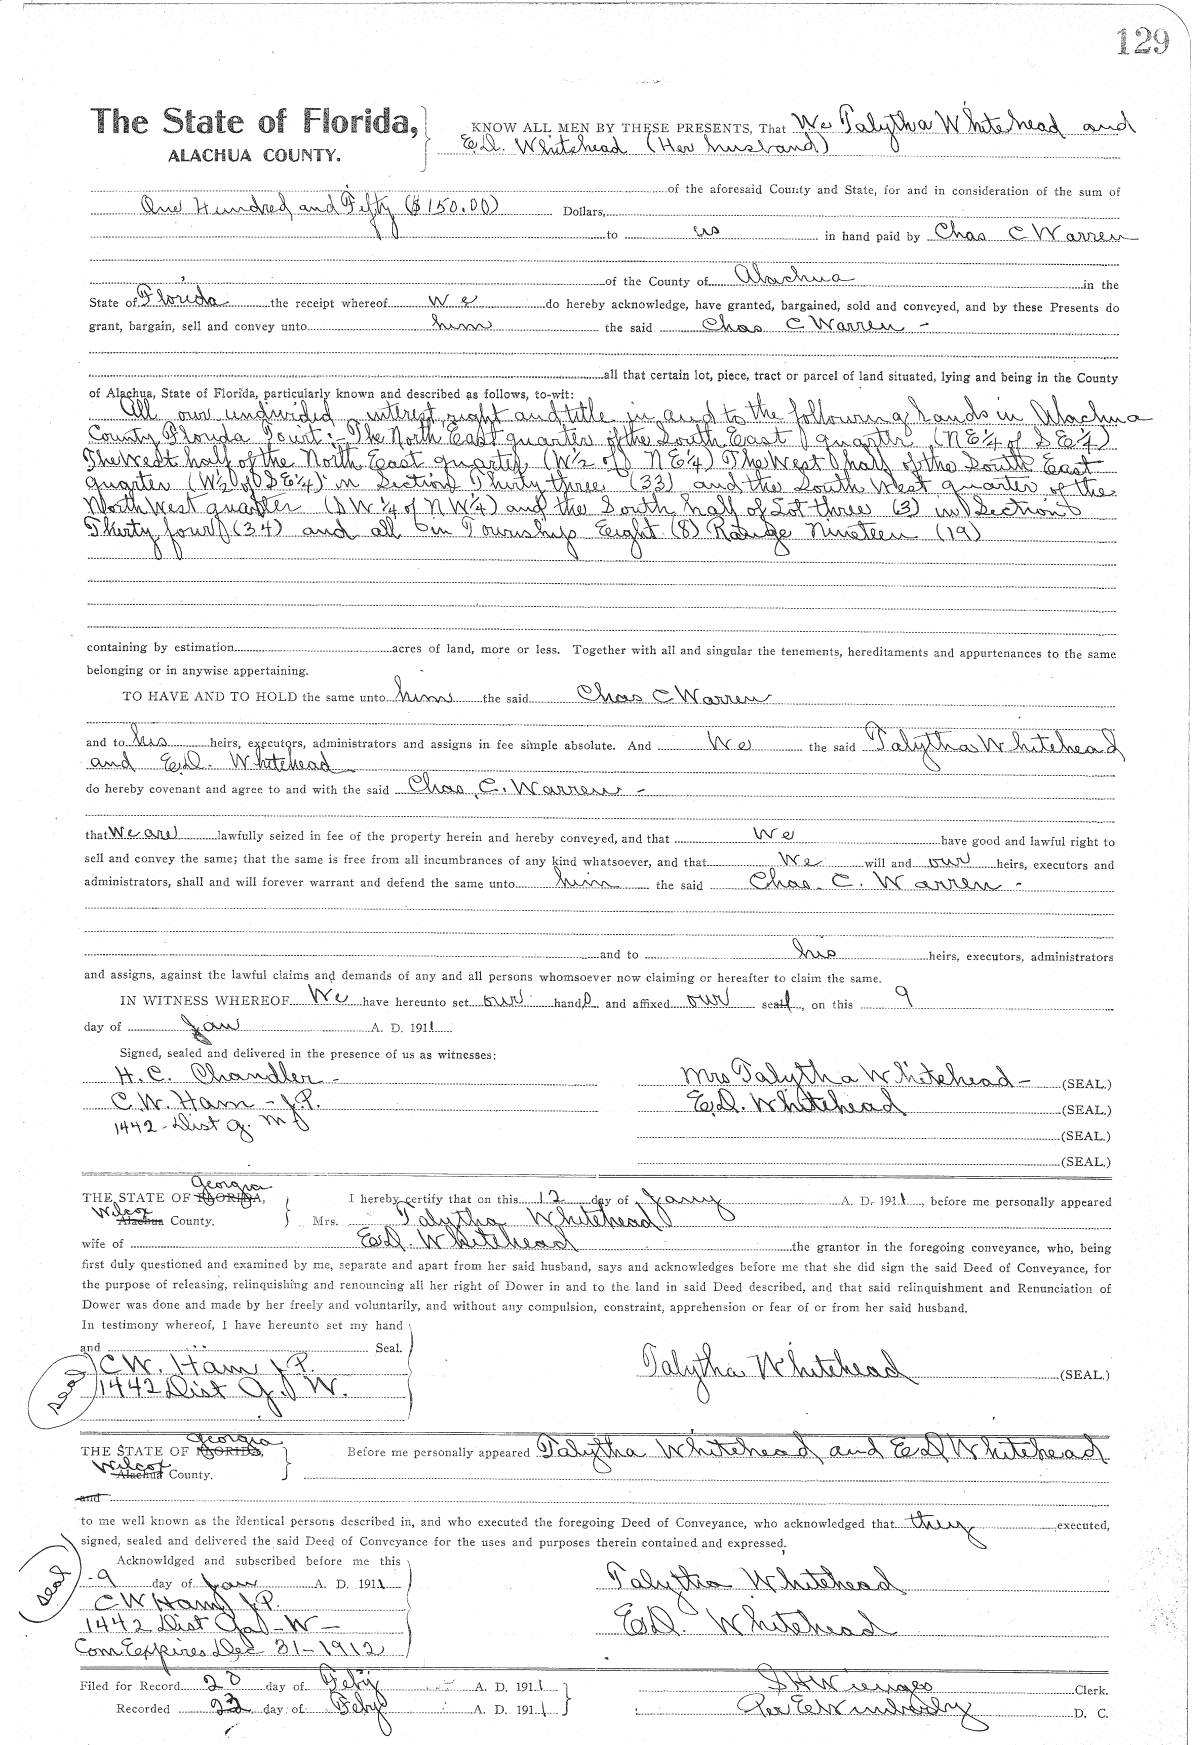 129
The State of Florida, KNOW ALL MEN BY THESE PRESENTS, That We Talytha Whitehead and
ALACHUA COUNTY. E.D. Whitehead (Her husband)
of the aforesaid County and State, for and in consideration of the sum of
One Hundred and Fifty ($150.00) Dollars,
to us in hand paid by Chas C Warren
of the County of Alachua in the
State of Florida the receipt whereof we do hereby acknowledge, have granted, bargained, sold and conveyed, and by these Presents do
grant, bargain, sell and convey unto him the said Chas C Warren -
all that certain lot, piece, tract or parcel of land situated, lying and being in the County
of Alachua, State of Florida, particularly known and described as follows, to-wit:
All our undivided interest, right and title in and to the following lands in Alachua
County Florida Towit:- The North East quarter of the South East quarter (NE 1/4 of SE 1/4)
The West half of the North East quarter (W 1/2 of NE 1/4) The West half of the South East
quarter (W 1/2 of SE 1/4) in Section Thirty three (33) and the South West quarter of the
North West quarter (SW 1/4 of NW 1/4) and the South half of Lot three (3) in Section
Thirty four (34) and all in Township Eight (8) Range Nineteen (19)
containing by estimation acres of land, more or less. Together with all and singular the tenements, hereditaments and appurtenances to the same
belonging or in anywise appertaining.
TO HAVE AND TO HOLD the same unto him the said Chas C Warren
and to his heirs, executors, administrators and assigns in fee simple absolute. And We the said Talytha Whitehead
and E.D. Whitehead
do hereby covenant and agree to and with the said Chas. C. Warren -
that we are lawfully seized in fee of the property herein and hereby conveyed, and that we have good and lawful right to
sell and convey the same; that the same is free from all incumbrances of any kind whatsoever, and that we will and our heirs, executors and
administrators, shall and will forever warrant and defend the same unto him the said Chas. C. Warren -
and to his heirs, executors, administrators
and assigns, against the lawful claims and demands of any and all persons whomsoever now claiming or hereafter to claim the same.
IN WITNESS WHEREOF We have hereunto set our hands and affixed our seal, on this 9
day of Jan A. D. 1911
Signed, sealed and delivered in the presence of us as witnesses:
H. C. Chandler - Mrs Talytha Whitehead - (SEAL.)
C. W. Ham - J.P. E.D. Whitehead (SEAL.)
1442 - Dist G. M (SEAL.)
(SEAL.)
Georgia
THE STATE OF FLORIDA, I hereby certify that on this 12 day of Jany A. D. 1911, before me personally appeared
Wilcox Alachua County. Mrs. Talytha Whitehead
wife of E.D. Whitehead the grantor in the foregoing conveyance, who, being
first duly questioned and examined by me, separate and apart from her said husband, says and acknowledges before me that she did sign the said Deed of Conveyance, for
the purpose of releasing, relinquishing and renouncing all her right of Dower in and to the land in said Deed described, and that said relinquishment and Renunciation of
Dower was done and made by her freely and voluntarily, and without any compulsion, constraint, apprehension or fear of or from her said husband.
In testimony whereof, I have hereunto set my hand
and Seal.
seal C W. Ham J.P. Talytha Whitehead (SEAL.)
1442 Dist G. W.
Georgia
THE STATE OF FLORIDA, Before me personally appeared Talytha Whitehead and E.D Whitehead
Wilcox Alachua County.
and
to me well known as the identical persons described in, and who executed the foregoing Deed of Conveyance, who acknowledged that they executed,
signed, sealed and delivered the said Deed of Conveyance for the uses and purposes therein contained and expressed.
Acknowldged and subscribed before me this
seal 9 day of Jan A. D. 1911 Talytha Whitehead
C W Ham J.P.
1442 Dist Ga - W - E.D. Whitehead
Com Expires Dec 31 - 1912
Filed for Record 20 day of Feby A. D. 1911 S H Wienges Clerk.
Recorded 22 day of Feby A. D. 1911 Per E Wimberly D. C.